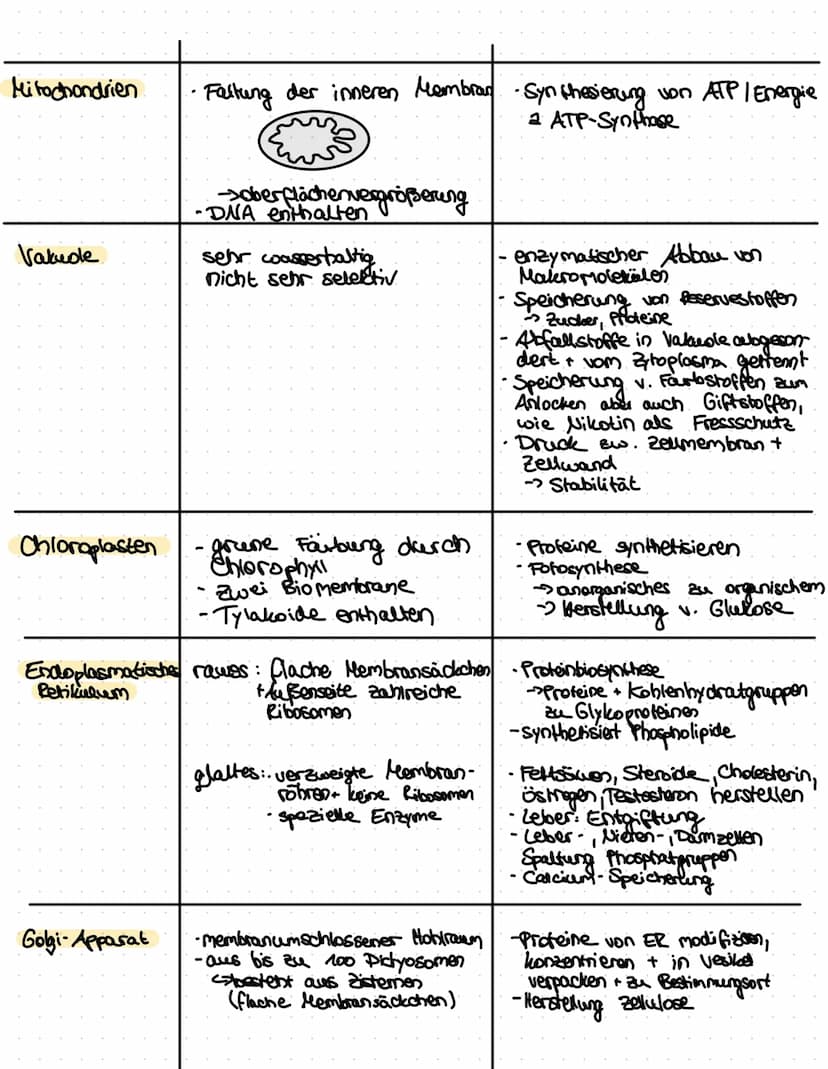 Mitochondrien
· Faltung der inneren Membran
→ oberflächenvergrößerung
- DNA enthalten
· Synthesierung von ATP / Energie
≙ ATP-Synthase
Vakuole
sehr wasserhaltig
nicht sehr selektiv
- enzymatischer Abbau von
Makromolekülen
· Speicherung von Reservestoffen
→ Zucker, Proteine
- Abfallstoffe in Vakuole abgeson-
dert + vom Zytoplasma getrennt
· Speicherung v. Farbstoffen zum
Anlocken aber auch Giftstoffen,
wie Nikotin als Fressschutz
· Druck zw. Zellmembran +
Zellwand
→ Stabilität
Chloroplasten
- grüne Färbung durch
Chlorophyll
· zwei Biomembrane
- Tylakoide enthalten
· Proteine synthetisieren
· Fotosynthese
→ anorganisches zu organischem
→ Herstellung v. Glukose
Endoplasmatisches
Retikulum
raues: flache Membransäckchen
+ Außenseite zahlreiche
Ribosomen
· Proteinbiosynthese
→ Proteine + Kohlenhydratgruppen
zu Glykoproteinen
- synthetisiert Phospholipide
glattes: · verzweigte Membran-
röhren + keine Ribosomen
· spezielle Enzyme
· Fettsäuren, Steroide, Cholesterin,
Östrogen, Testosteron herstellen
· Leber: Entgiftung
- Leber-, Nieren-, Darmzellen
Spaltung Phosphatgruppen
· Calcium-Speicherung
Golgi-Apparat
· membranumschlossener Hohlraum
- aus bis zu 100 Dictyosomen
↳ besteht aus Zisternen
(flache Membransäckchen)
- Proteine von ER modifizieren,
konzentrieren + in Vesikel
verpacken + zu Bestimmungsort
- Herstellung Zellulose